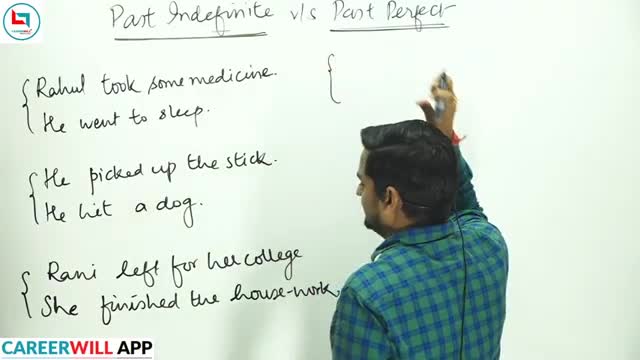 CAREERWILL
Past Indefinite v/s Past Perfect
Rahul took some medicine.
He went to sleep.
He picked up the stick.
He hit a dog.
Rani left for her college
She finished the house-work.
CAREERWILL APP